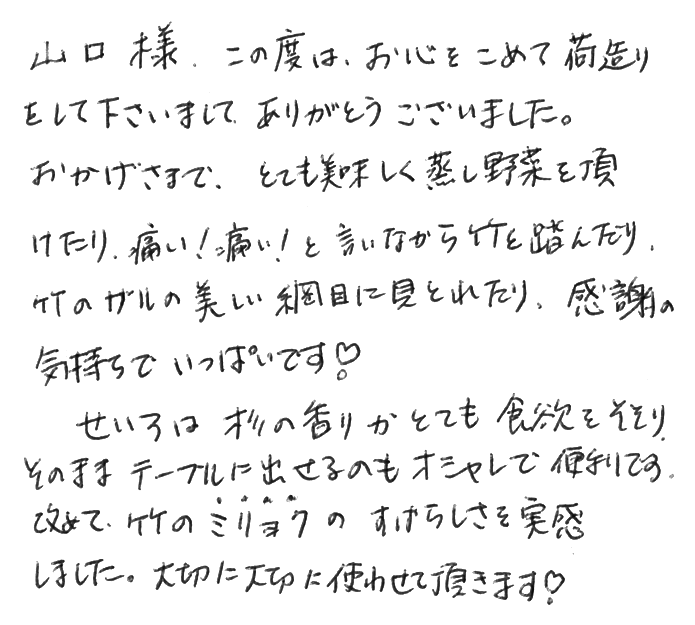 山口様、この度は、お心をこめて荷造り
をして下さいまして、ありがとうございました。
おかげさまで、とても美味しく蒸し野菜を頂
けたり、痛い！痛い！と言いながら竹を踏んだり、
竹のザルの美しい網目に見とれたり、感謝の
気持ちでいっぱいです♡
せいろは杉の香りがとても食欲をそそり、
そのままテーブルに出せるのもオシャレで便利です。
改めて、竹のミリョクのすばらしさを実感
しました。大切に大切に使わせて頂きます♡